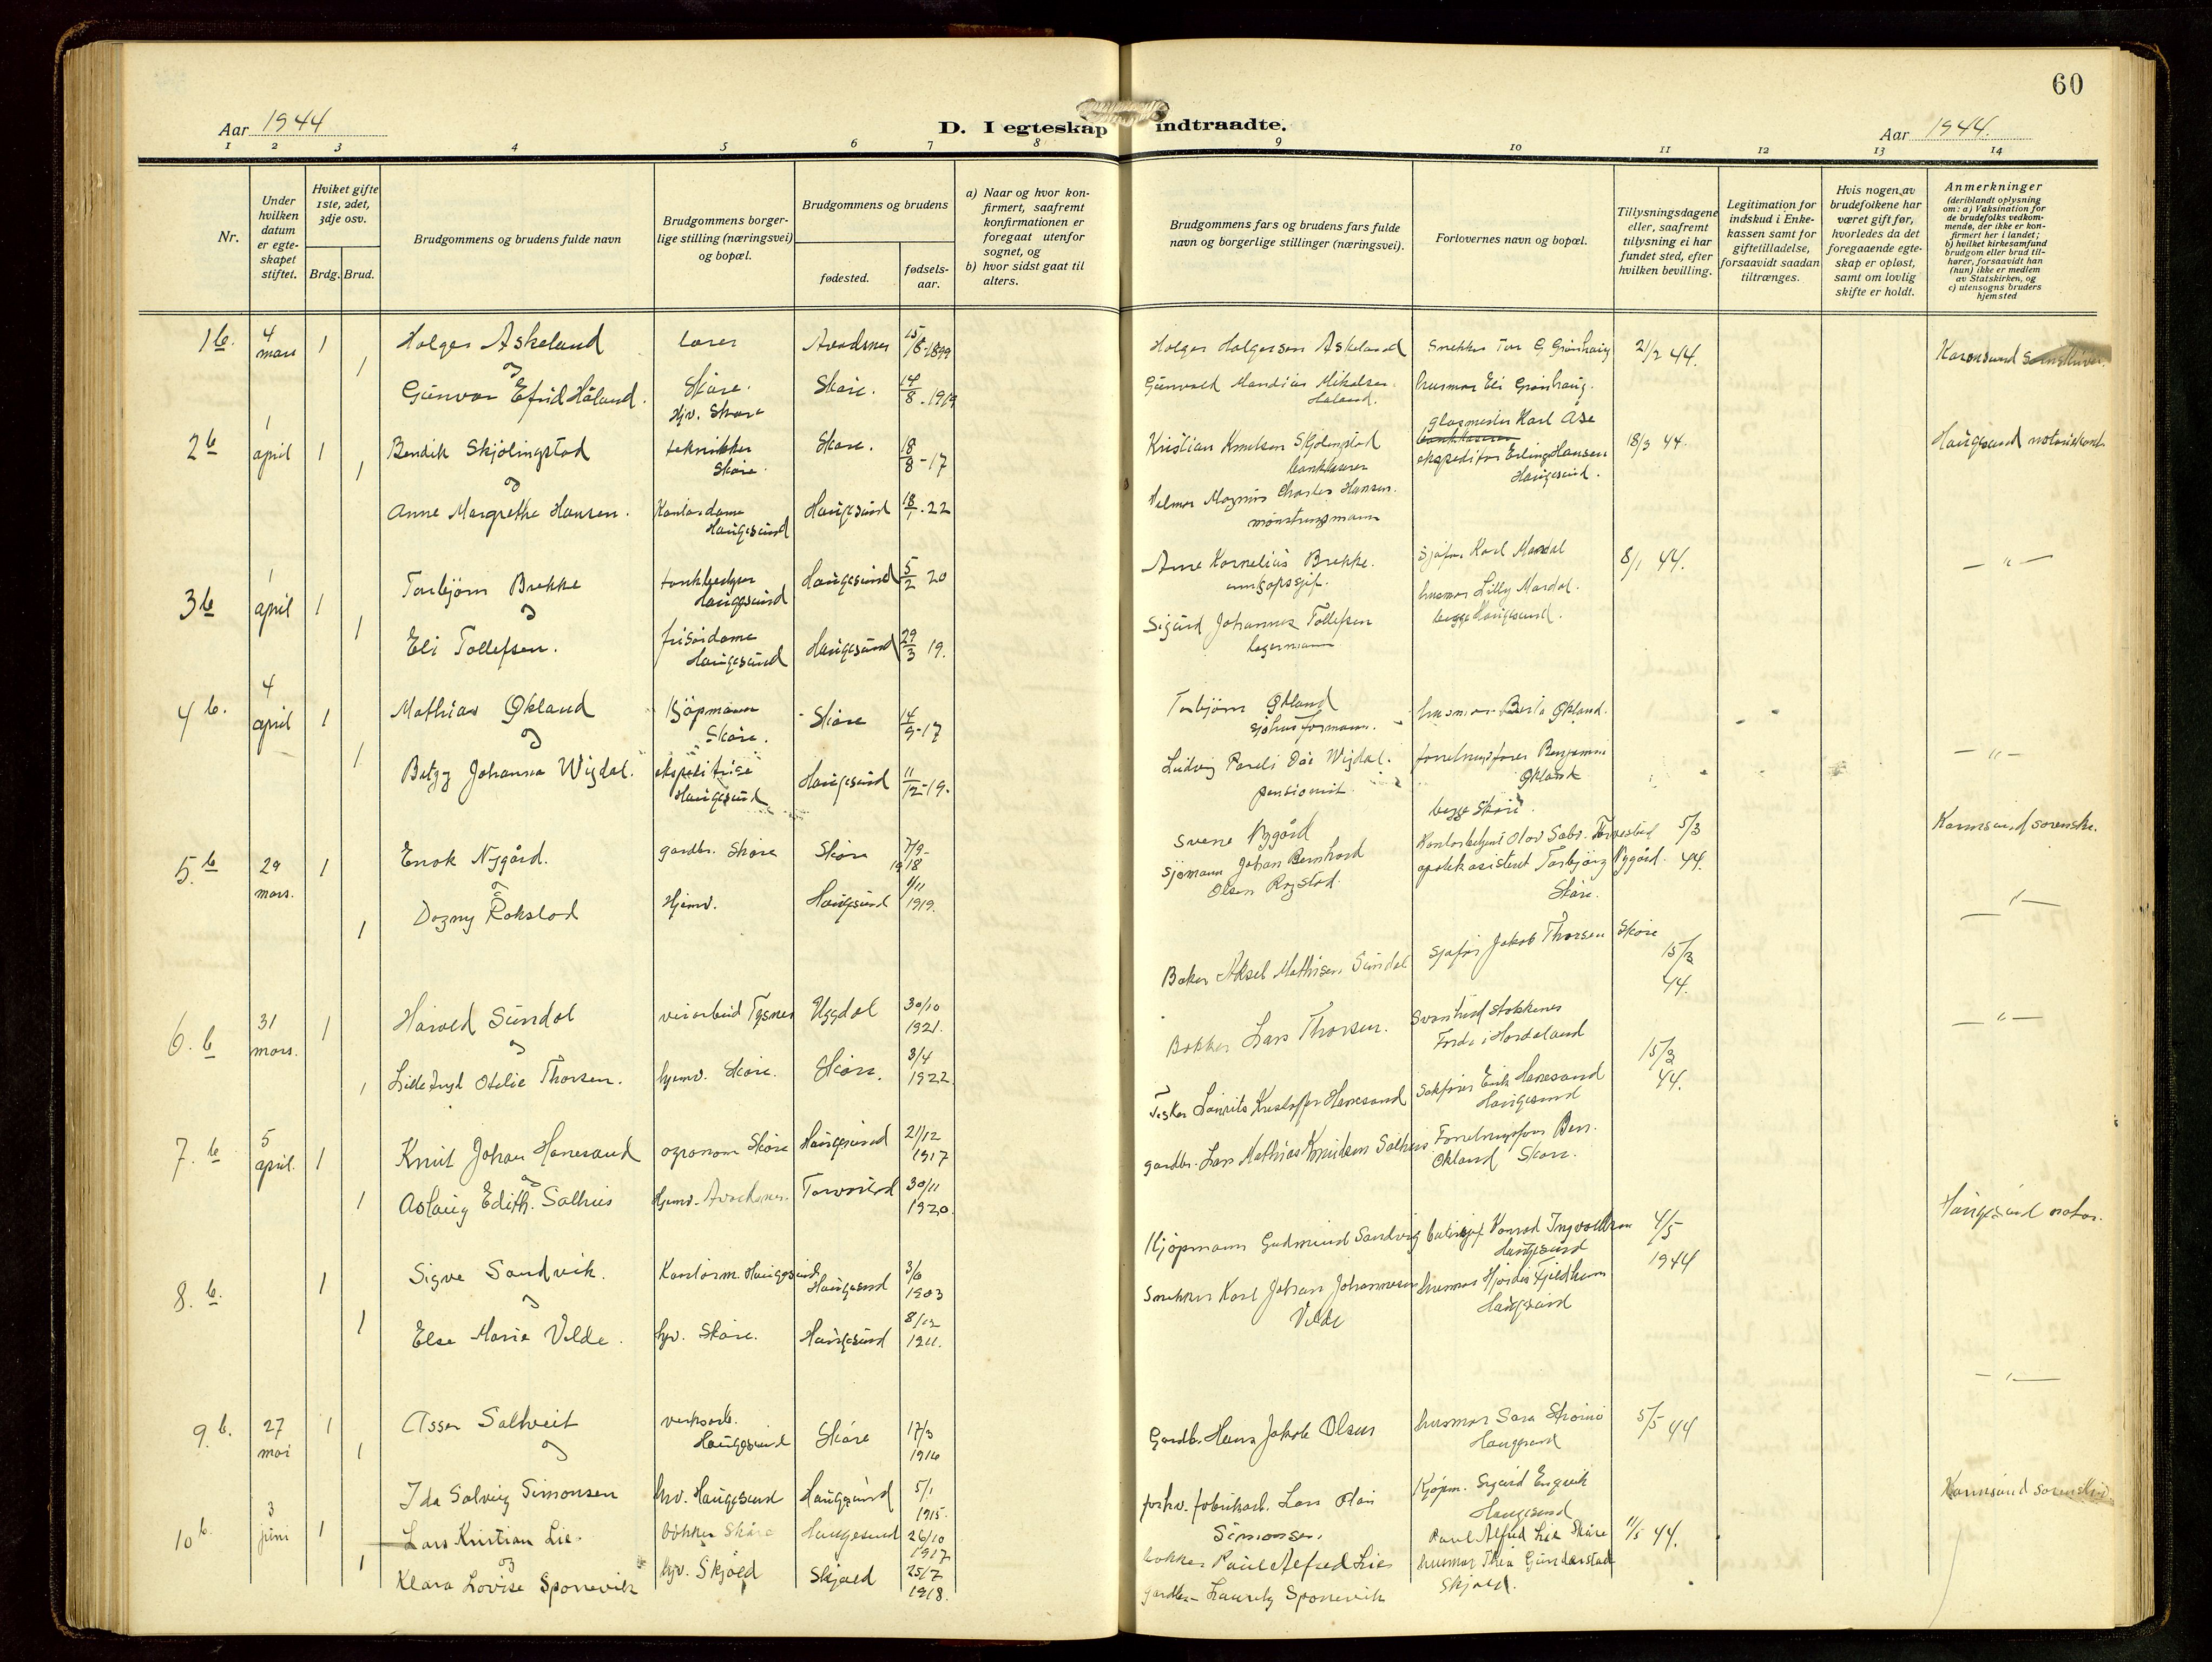 60
Aar 1944
D. I egteskap indtraadte.
Aar 1944.
1 2 3 4 5 6 7 8 9 10 11 12 13 14
Nr.
Under hvilken datum er egteskapet stiftet.
Hviket gifte 1ste, 2det, 3dje osv.
Brdg. Brud.
Brudgommens og brudens fulde navn
Brudgommens borgerlige stilling (næringsvei) og bopæl.
Brudgommens og brudens
fødested.
fødselsaar.
a) Naar og hvor konfirmert, saafremt konfirmationen er foregaat utenfor sognet, og
b) hvor sidst gaat til alters.
Brudgommens fars og brudens fars fulde navn og borgerlige stillinger (næringsvei).
Forlovernes navn og bopæl.
Tillysningsdagene eller, saafremt tillysning ei har fundet sted, efter hvilken bevilling.
Legitimation for indskud i Enkekassen samt for giftetilladelse, forsaavidt saadan tiltrænges.
Hvis nogen av brudefolkene har været gift før, hvorledes da det foregaaende egteskap er opløst, samt om lovlig skifte er holdt.
Anmerkninger
(deriblandt oplysning om: a) Vaksination for de brudefolks vedkommende, der ikke er konfirmert her i landet;
b) hvilket kirkesamfund brudgom eller brud tilhører, forsaavidt han (hun) ikke er medlem av Statskirken, og
c) utensogns bruders hjemsted
1 b. 4 mars 1 Holger Askeland lærer Avadsnes 15/8-1899 Holger Holgersen Askeland Snekker Tor G Grønhaug 21/2 44. Karmsund
og
1 Gunvor Efrid Håland. Skåre. Hjv. Skåre Skåre. 14/8-1919 Gunvald Mandius Mikalsen Håland. husmor Eli Grønhaug.
2 b 1 april 1 Bendik Skjölingstad tekniker Skåre. Skåre. 18/8-17 Kristian Knutsen Skjölingstad bankkasserer glasmester Karl Åse 18/3 44. Haugesund
og
1 Anne Margrethe Hansen. Kontordame Haugesund Haugesund 18/1-22 Hilmar Magnus Charles Hansen. mönstringsmann ekspeditör Erling Hansen Haugesund.
3 b 1 april 1 Torbjörn Brekke Haugesund Haugesund 5/2 20 Arne Kornelius Brekke. Sjåfør Karl Mardal 8/1 44. — " —
og
1 Eli Tollefsen. frisördame Haugesund Haugesund 29/3 19. Sigurd Johannes Tollefsen lagermann husmor Lilly Mardal. begge Haugesund.
4 b. 4 april 1 Mathias Økland Kjöpmann Skåre. Skåre 14/9-17 Torbjörn Økland sjöhusformann. husmor Berta Økland. — " —
og
1 Betzy Johanna Wigdal. ekspeditrise Haugesund Haugesund 11/12-19. Ludvig Wigdal. pensionist forretningsförer Benjamin Økland begge Skåre
5. b 29 mars. 1 Enok Nygård. gardbr. Skåre Skåre 7/9-1918 Sverre Nygård Kontorbetjent Olav Torvestad 5/3 44. Karmsund sorenskr.
og
1 Dagny Rokstad Hjemv. Haugesund 1/11 1919. Sjömann Johan Bernhard Olsen Rogstad. apotekasistent Torbjörg Nygård. Skåre. — " —
6. b 31 mars. 1 Harald Sundal veiarbeid Tysnes Uggdal 30/10 1921. Baker Aksel Mathisen Sundal Sjåför Jakob Thorsen Skåre 15/3 44. — " —
og
1 Otelie Thorsen. hjemv. Skåre. Skåre. 3/4 1922 Bökker Lars Thorsen. Svanhild Stokkenes Förde i Hordaland
7. b 5 april. 1 Knut Johan Hanesand agronom Skåre Haugesund 21/12 1917 Fisker Laurits Kristoffer Hanesand Sakförer Erik Hanesand Haugesund 15/3 44.
og
1 Aslaug Edith. Salhus Hjemv. Avadsnes. Torvastad 30/11 1920. gardbr. Lars Mathias Knudsen Salhus Forretningsförer Ben. Økland Skåre.
8. b. 1 Sigve Sandvik. Kontorm. Haugesund Haugesund 3/6 1903 Kjöpmann Gudmund Sandvig Konrad Ingvaldsen Haugesund 4/5 1944 Haugesund notar.
og
1 Else Marie Velde. hjv. Skåre. Haugesund 8/12 1911. Snekker Karl Johan Johannesen Velde husmor Hjördis Fjeldheim Haugesund
9. b. 27 mai 1 Asser Saltveit verksarb. Haugesund Skåre 17/3 1916 Gardbr. Hans Jakob Olsen husmor Sara Haugesund 5/5 44 — " —
og
1 Ida Solveig Simonsen hv. Haugesund Haugesund 5/1 1915. fabrikarb. Lars Simonsen. Kjöpm. Sigurd Engevik Haugesund
10 b. 3 juni 1 Lars Kristian Lie. bökker Skåre Haugesund 26/10 1917 bökker Paul Alfred Lie Paul Alfred Lie Skåre 11/5 44. Karmsund
og
1 Klara Lovise Sponevik hjv. Skjold Skjold 25/7 1918. gardbr. Lauritz Sponevik husmor Thea Gunderstad Skjold.